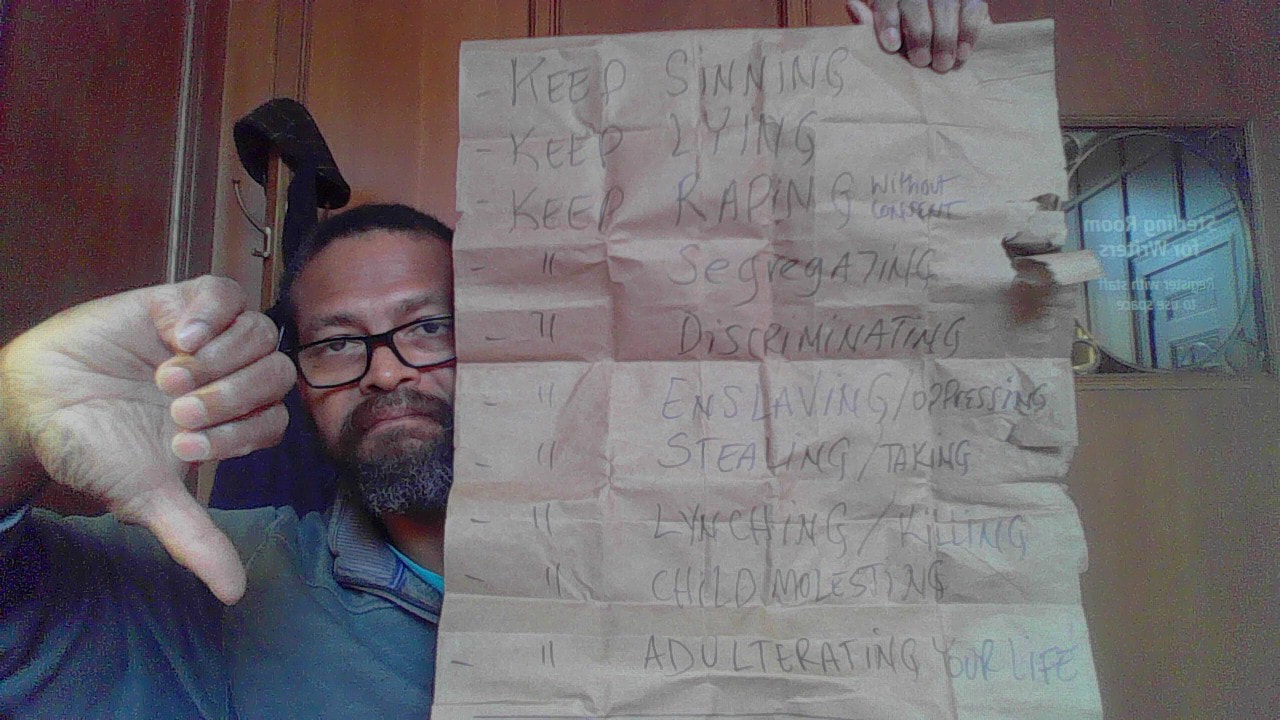 - KEEP SINNING
- KEEP LYING
- KEEP RAPING without consent
- " SegregATING
- " DISCRIMINATING
- " ENSLAVING/OPPRESSING
- " STEALING/TAKING
- " LYNCHING/KILLING
- " CHILD MOLESTING
- " ADULTERATING YOUR LIFE
Sterling Room
for Writers
Register with staff
to use space